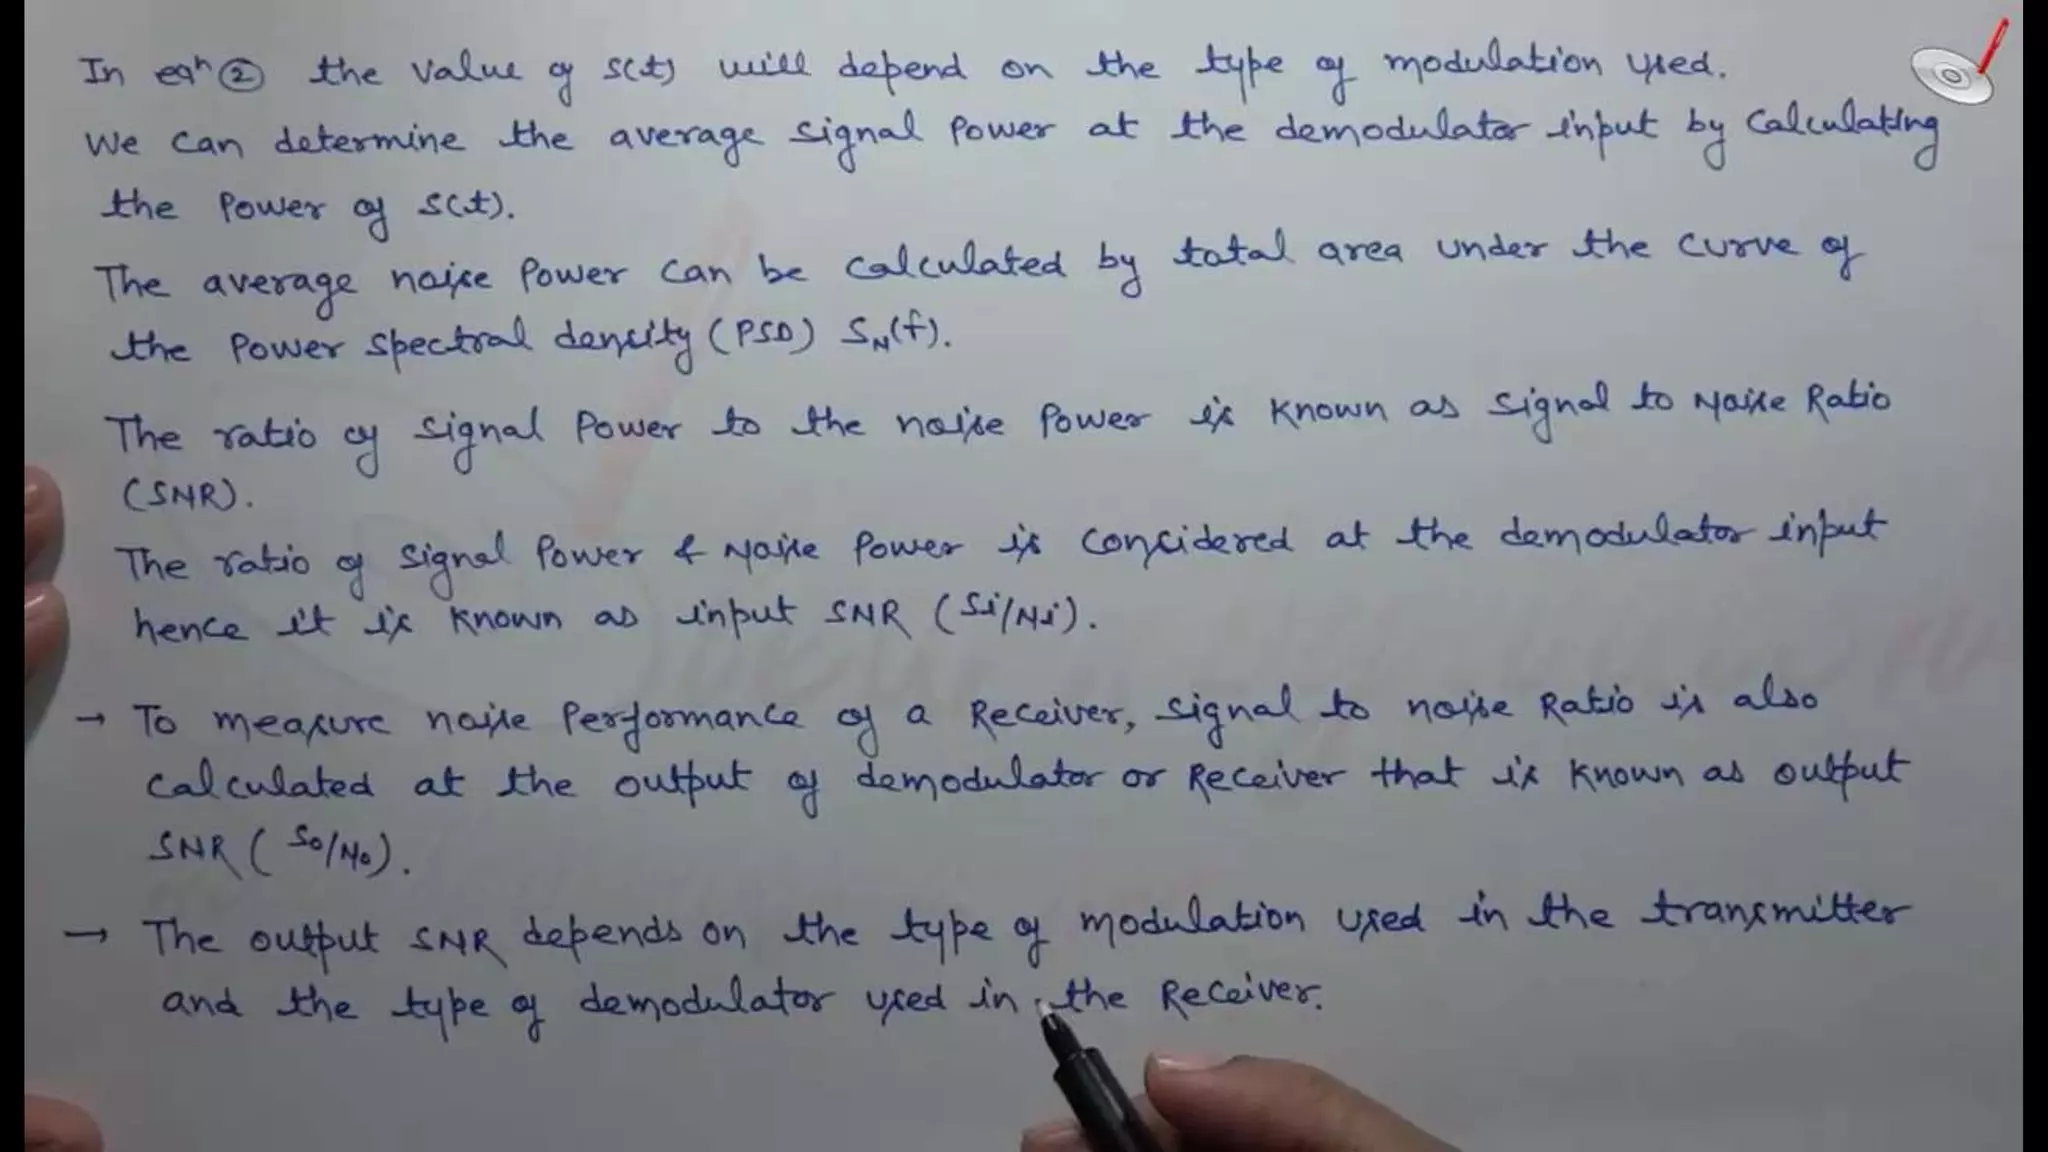 In eqn ② the value of s(t) will depend on the type of modulation used.
We can determine the average signal power at the demodulator input by calculating
the power of s(t).
The average noise power can be calculated by total area under the curve of
the power spectral density (PSD) SN(f).
The ratio of signal power to the noise power is known as signal to Noise Ratio
(SNR).
The ratio of signal power & Noise power is considered at the demodulator input
hence it is known as input SNR (Si/Ni).
→ To measure noise performance of a Receiver, signal to noise Ratio is also
calculated at the output of demodulator or Receiver that is known as output
SNR (So/No).
→ The output SNR depends on the type of modulation used in the transmitter
and the type of demodulator used in the Receiver.